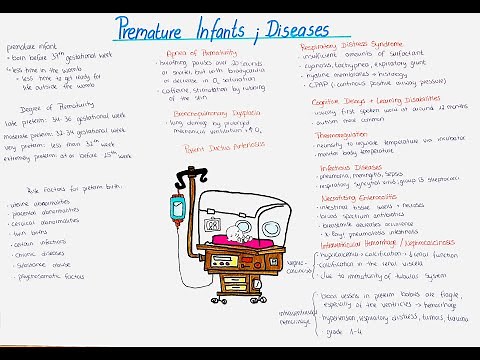 Premature Infants ; Diseases
premature infant
→ born before 37th gestational week
↳ less time in the womb
= less time to get ready for
life outside the womb
Degree of Prematurity
late preterm: 34-36 gestational week
moderate preterm: 32-34 gestational week
very preterm: less than 32nd week
extremely preterm: at or before 25th week
Risk Factors for preterm birth:
• uterine abnormalities
• placental abnormalities
• cervical abnormalities
• twin births
• certain infections
• chronic diseases
• substance abuse
• psychosomatic factors
Apnea of Prematurity
• breathing pauses over 20 seconds
or shorter, but with bradycardia
or decrease in O₂ saturation
• caffeine, stimulation by rubbing
of the skin
Bronchopulmonary Dysplasia
• lung damage by prolonged
mechanical ventilation + ↑ O₂
Patent Ductus Arteriosus
Respiratory Distress Syndrome
• insufficient amounts of surfactant
• cyanosis, tachypnea, expiratory grunt
• hyaline membranes → histology
• CPAP (continous positive airway pressure)
Cognitive Delays + Learning Disabilities
• usually first spoken word at around 12 months
• autism more common
Thermoregulation
• necessity to regulate temperature via incubator
• monitor body temperature
Infectious Diseases
• pneumonia, meningitis, sepsis
• respiratory syncytial virus; group B streptococci
Necrotising Enterocolitis
• intestinal tissue necrosis
• broad spectrum antibiotics
• breastmilk decreases occurrence
• x-Ray: pneumatosis intestinalis
Intraventricular Hemorrhage / Nephrocalcinosis
nephro-
calcinosis
• hypercalcemia → calcification → ↓ renal function
• calcification in the renal vessels
• due to immaturity of tubular system
intraventricular
hemorrhage
• blood vessels in preterm babies are fragile,
especially of the ventricles → hemorrhage
• hypertension, respiratory distress, tumors, trauma
• grade 1-4